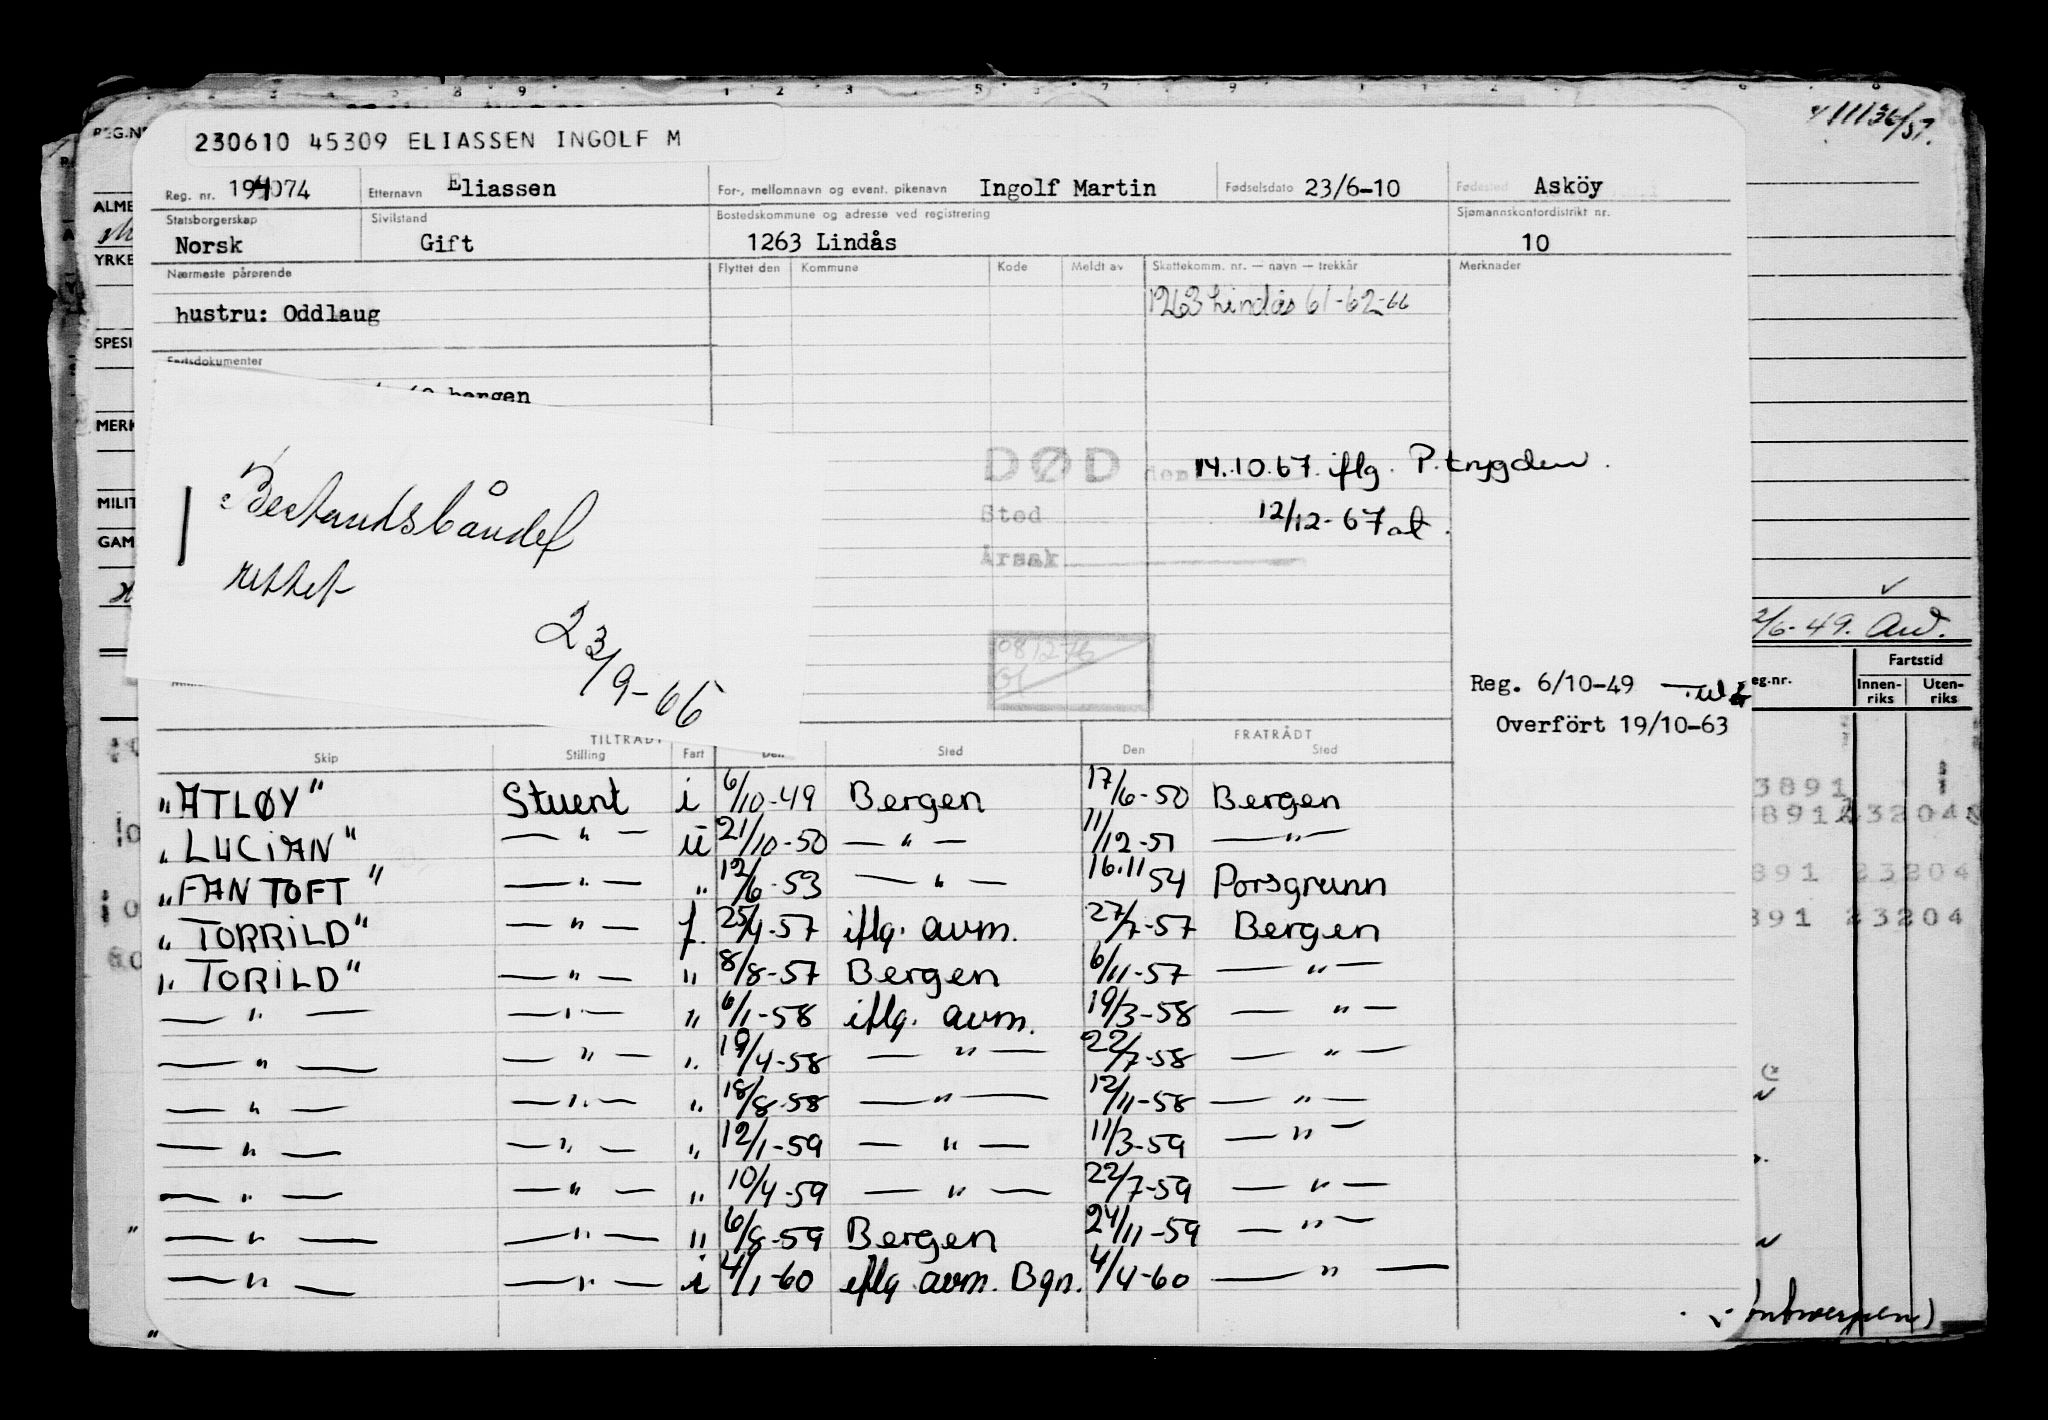 4/11136/57.
230610 45309 ELIASSEN INGOLF M
REG.NR
Reg. nr. 194074 Etternavn Eliassen For-, mellomnavn og event. pikenavn Ingolf Martin Fødselsdato 23/6-10 Fødested Asköy
ALME
Statsborgerskap Sivilstand Bostedskommune og adresse ved registrering Sjømannskontordistrikt nr.
Norsk Gift 1263 Lindås 10
YRKE
Nærmeste pårørende Flyttet den Kommune Kode Meldt av Skattekomm. nr. — navn — trekkår Merknader
1263 Lindås 61-62-66
hustru: Oddlaug
SPESI
Fartsdokumenter
bergen
MERK
DØD den 14.10.67. iflg. P.trygden.
Sted 12/12-67 al.
Årsak
MILIT
GAM
23/9-66
081276
2/6-49. And.
Fartstid
eg.nr. Innen-riks Uten-riks
Reg. 6/10-49
Overfört 19/10-63
TILTRÅDT FRATRÅDT
Skip Stilling Fart Den Sted Den Sted
"ATLØY" Stuert i 6/10-49 Bergen 17/6-50 Bergen
"LUCIAN" — " — u 21/10-50 — " — 11/12-51 — " —
"FANTOFT" — " — " 12/6-53 — " — 16.11 54 Porsgrunn
"TORRILD" — " — f. 25/4-57 iflg. avm. 27/7-57 Bergen
"TORILD" — " — " 8/8-57 Bergen 6/11-57 — " —
— " — — " — " 6/1-58 iflg. avm. 19/3-58 — " —
— " — — " — " 19/4-58 — " — 22/7-58 — " —
— " — — " — " 18/8-58 — " — 12/11-58 — " —
— " — — " — " 12/1-59 — " — 11/3-59 — " —
— " — — " — " 10/4-59 — " — 22/7-59 — " —
— " — — " — " 6/8-59 Bergen 24/11-59 — " —
— " — — " — i 4/1-60 iflg. avm. Bgn. 4/4-60 — " —
3891
8912 23204
891 23204
891 23204
(Antwerpen)